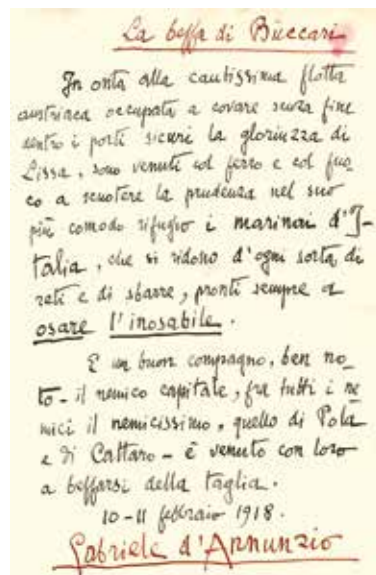 La beffa di Bùccari
In onta alla cautissima flotta
austriaca occupata a covare senza fine
dentro i porti sicuri la gloriuzza di
Lissa, sono venuti col ferro e col fuo-
co a scuotere la prudenza nel suo
più comodo rifugio i marinai d'I-
talia, che si ridono d'ogni sorta di
reti e di sbarre, pronti sempre a
osare l'inosabile.
E un buon compagno, ben no-
to - il nemico capitale, fra tutti i ne
mici il nemicissimo, quello di Pola
e di Cattaro - è venuto con loro
a beffarsi della taglia.
10-11 febbraio 1918.
Gabriele d'Annunzio